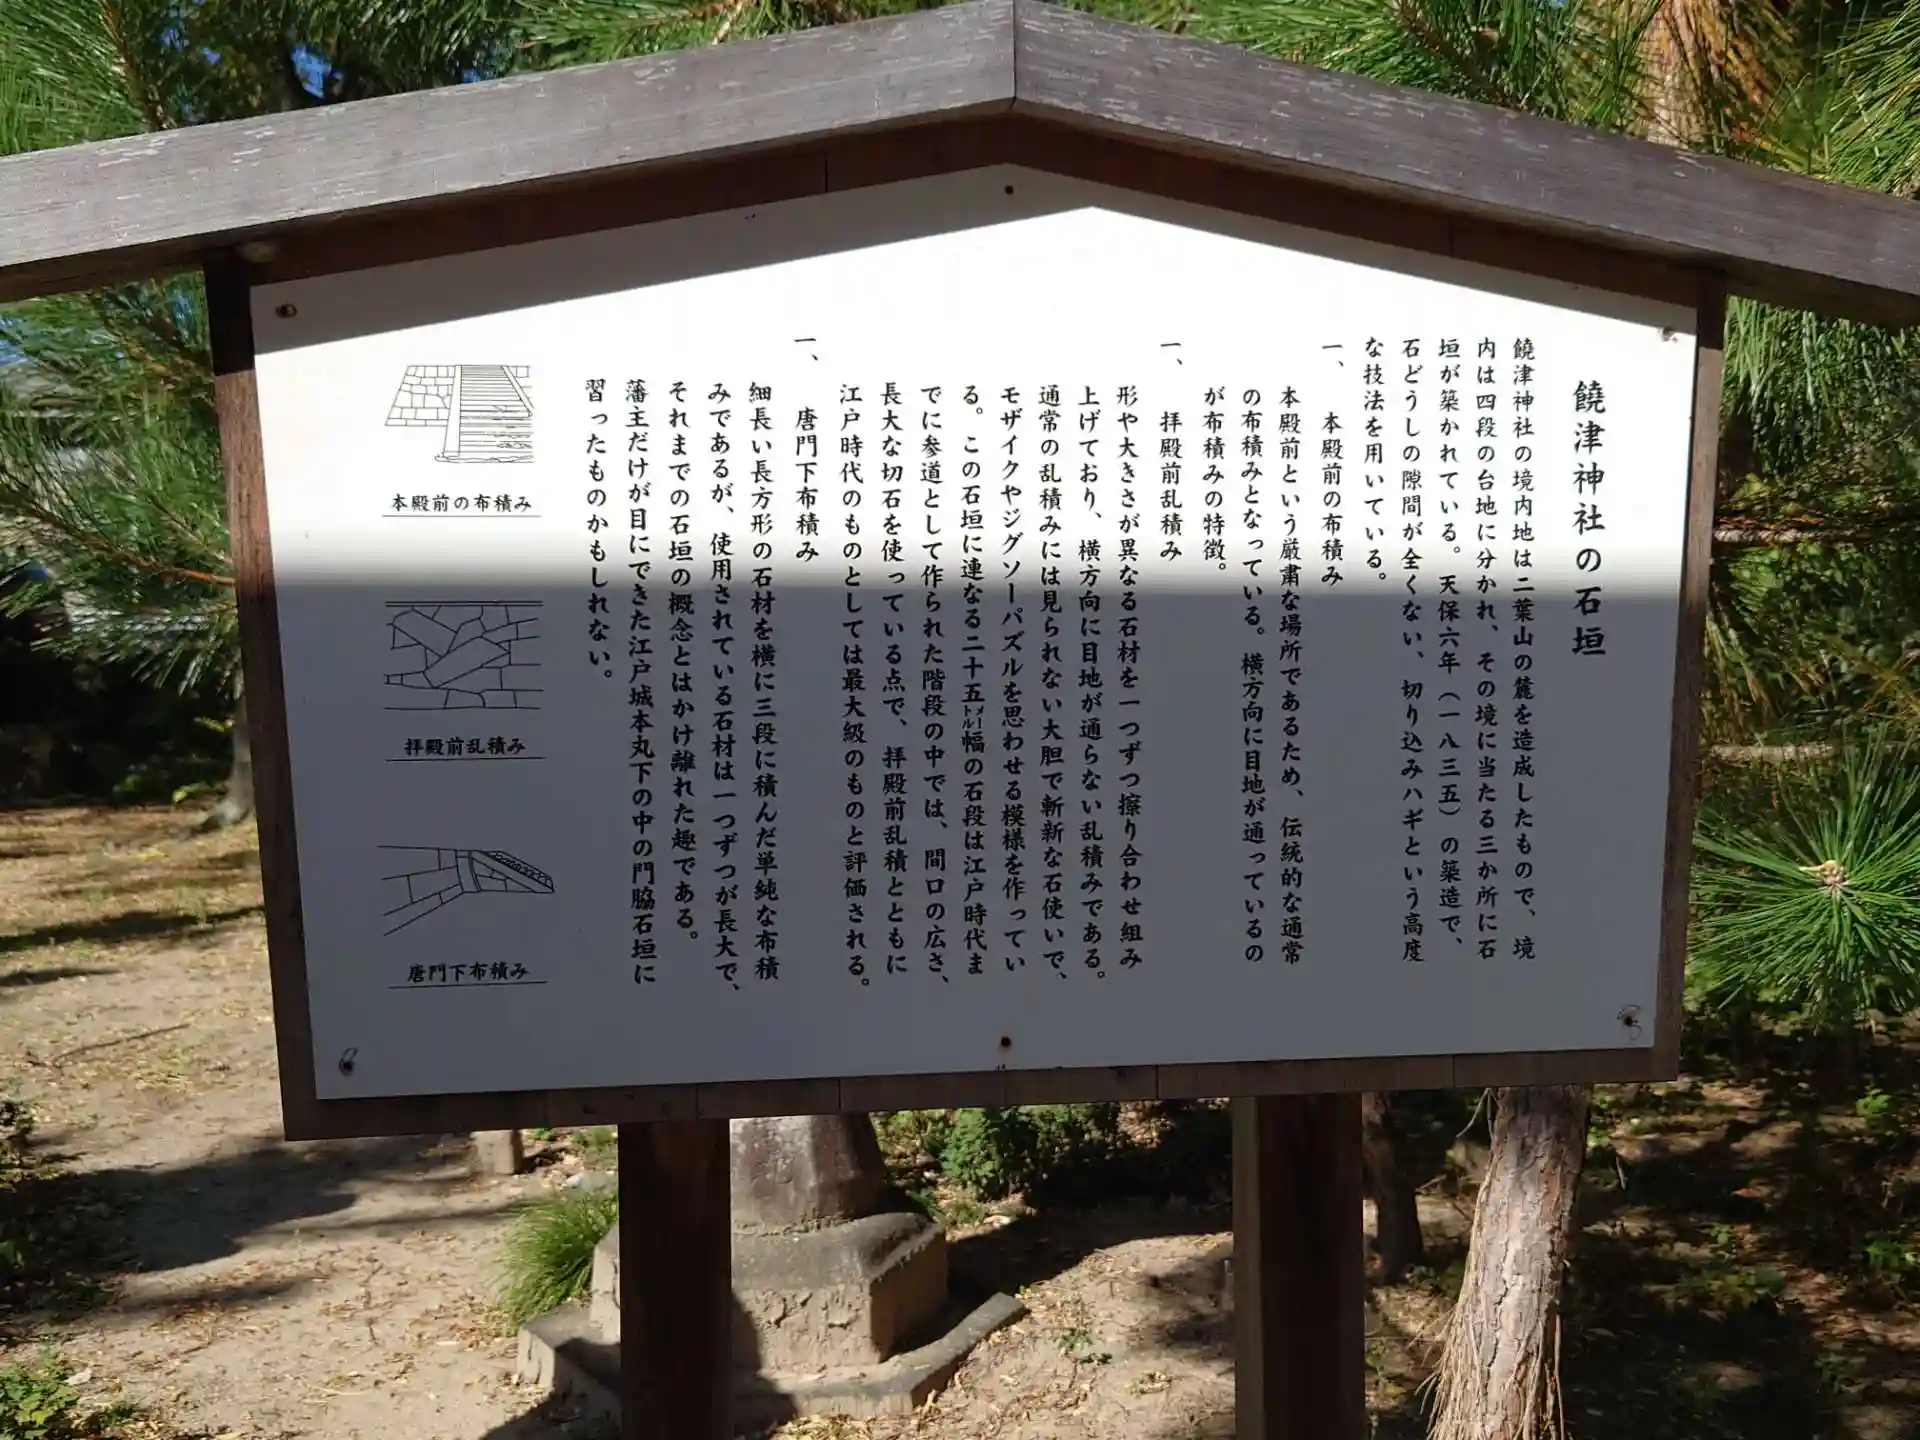 饒津神社の石垣
饒津神社の境内地は二葉山の麓を造成したもので、境
内は四段の台地に分かれ、その境に当たる三か所に石
垣が築かれている。天保六年（一八三五）の築造で、
石どうしの隙間が全くない、切り込みハギという高度
な技法を用いている。
一、　本殿前の布積み
本殿前という厳粛な場所であるため、伝統的な通常
の布積みとなっている。横方向に目地が通っているの
が布積みの特徴。
一、　拝殿前乱積み
形や大きさが異なる石材を一つずつ擦り合わせ組み
上げており、横方向に目地が通らない乱積みである。
通常の乱積みには見られない大胆で斬新な石使いで、
モザイクやジグソーパズルを思わせる模様を作ってい
る。この石垣に連なる二十五メートル幅の石段は江戸時代ま
でに参道として作られた階段の中では、間口の広さ、
長大な切石を使っている点で、拝殿前乱積とともに
江戸時代のものとしては最大級のものと評価される。
一、　唐門下布積み
細長い長方形の石材を横に三段に積んだ単純な布積
みであるが、使用されている石材は一つずつが長大で、
それまでの石垣の概念とはかけ離れた趣である。
藩主だけが目にできた江戸城本丸下の中の門脇石垣に
習ったものかもしれない。
本殿前の布積み
拝殿前乱積み
唐門下布積み